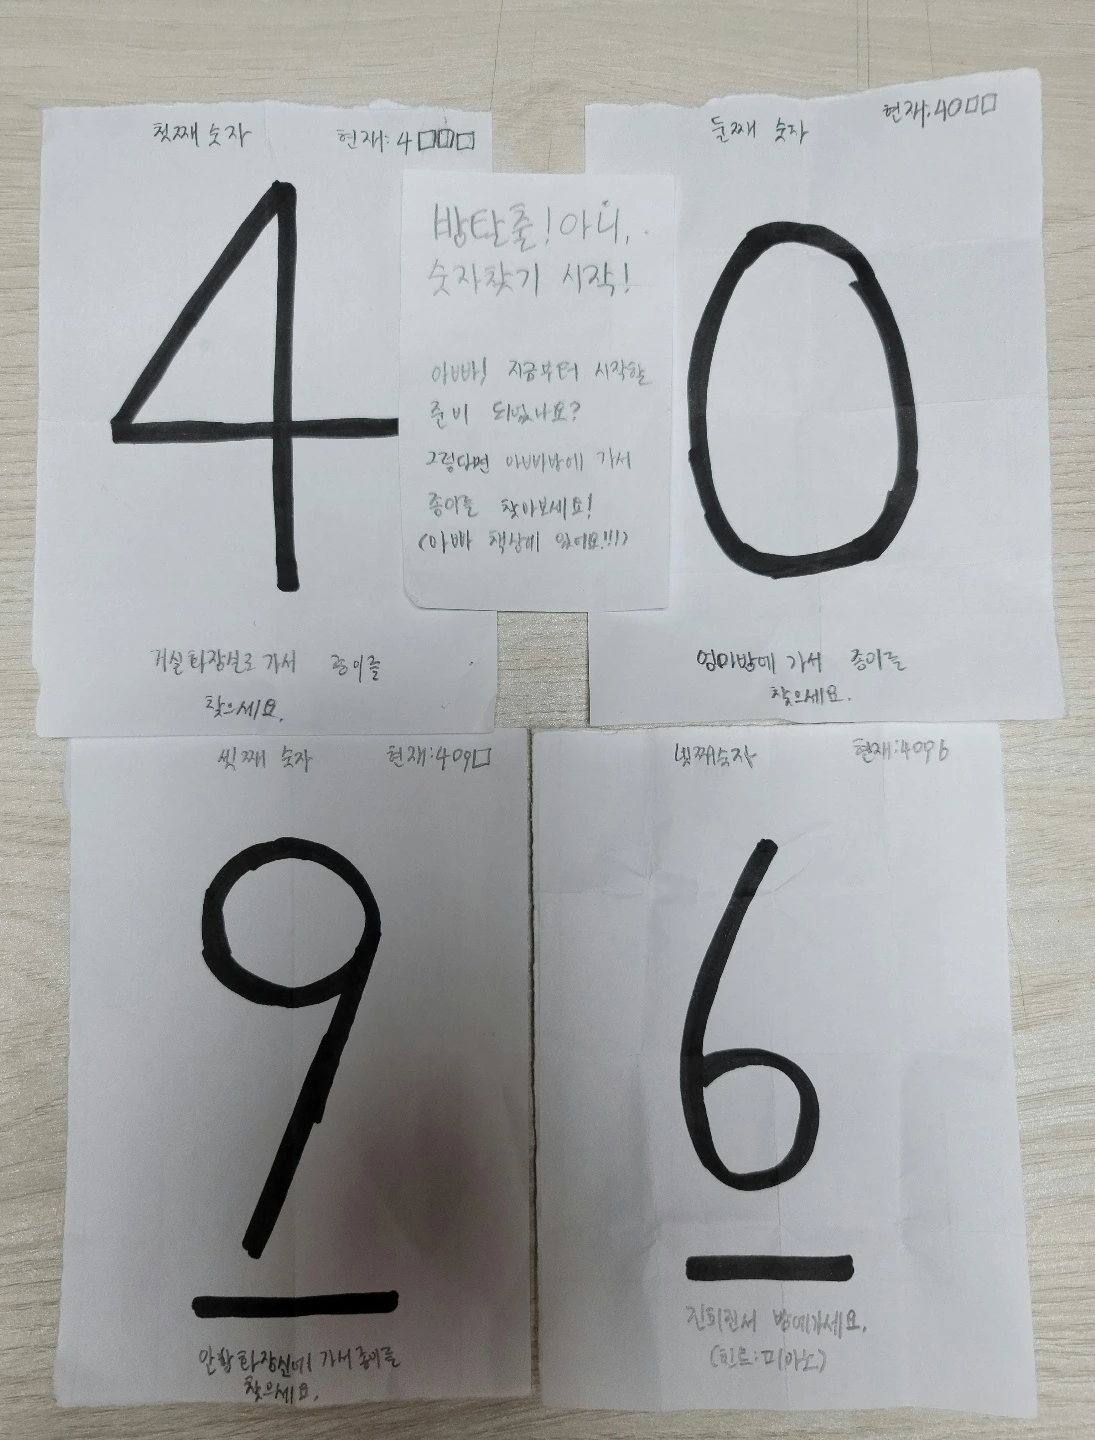 방탈출! 아니,
숫자찾기 시작!
아빠! 지금부터 시작할
준비 되었나요?
그렇다면 아빠방에 가서
종이를 찾아보세요!
(아빠 책상에 있어요!!!)
첫째 숫자 현재: 4□□□
4
거실화장실로 가서 종이를
찾으세요.
둘째 숫자 현재: 40□□
0
엄마방에 가서 종이를
찾으세요.
셋째 숫자 현재: 409□
9
안방화장실에 가서 종이를
찾으세요.
넷째숫자 현재: 4096
6
진희진서 방에가세요.
(힌트: 피아노)